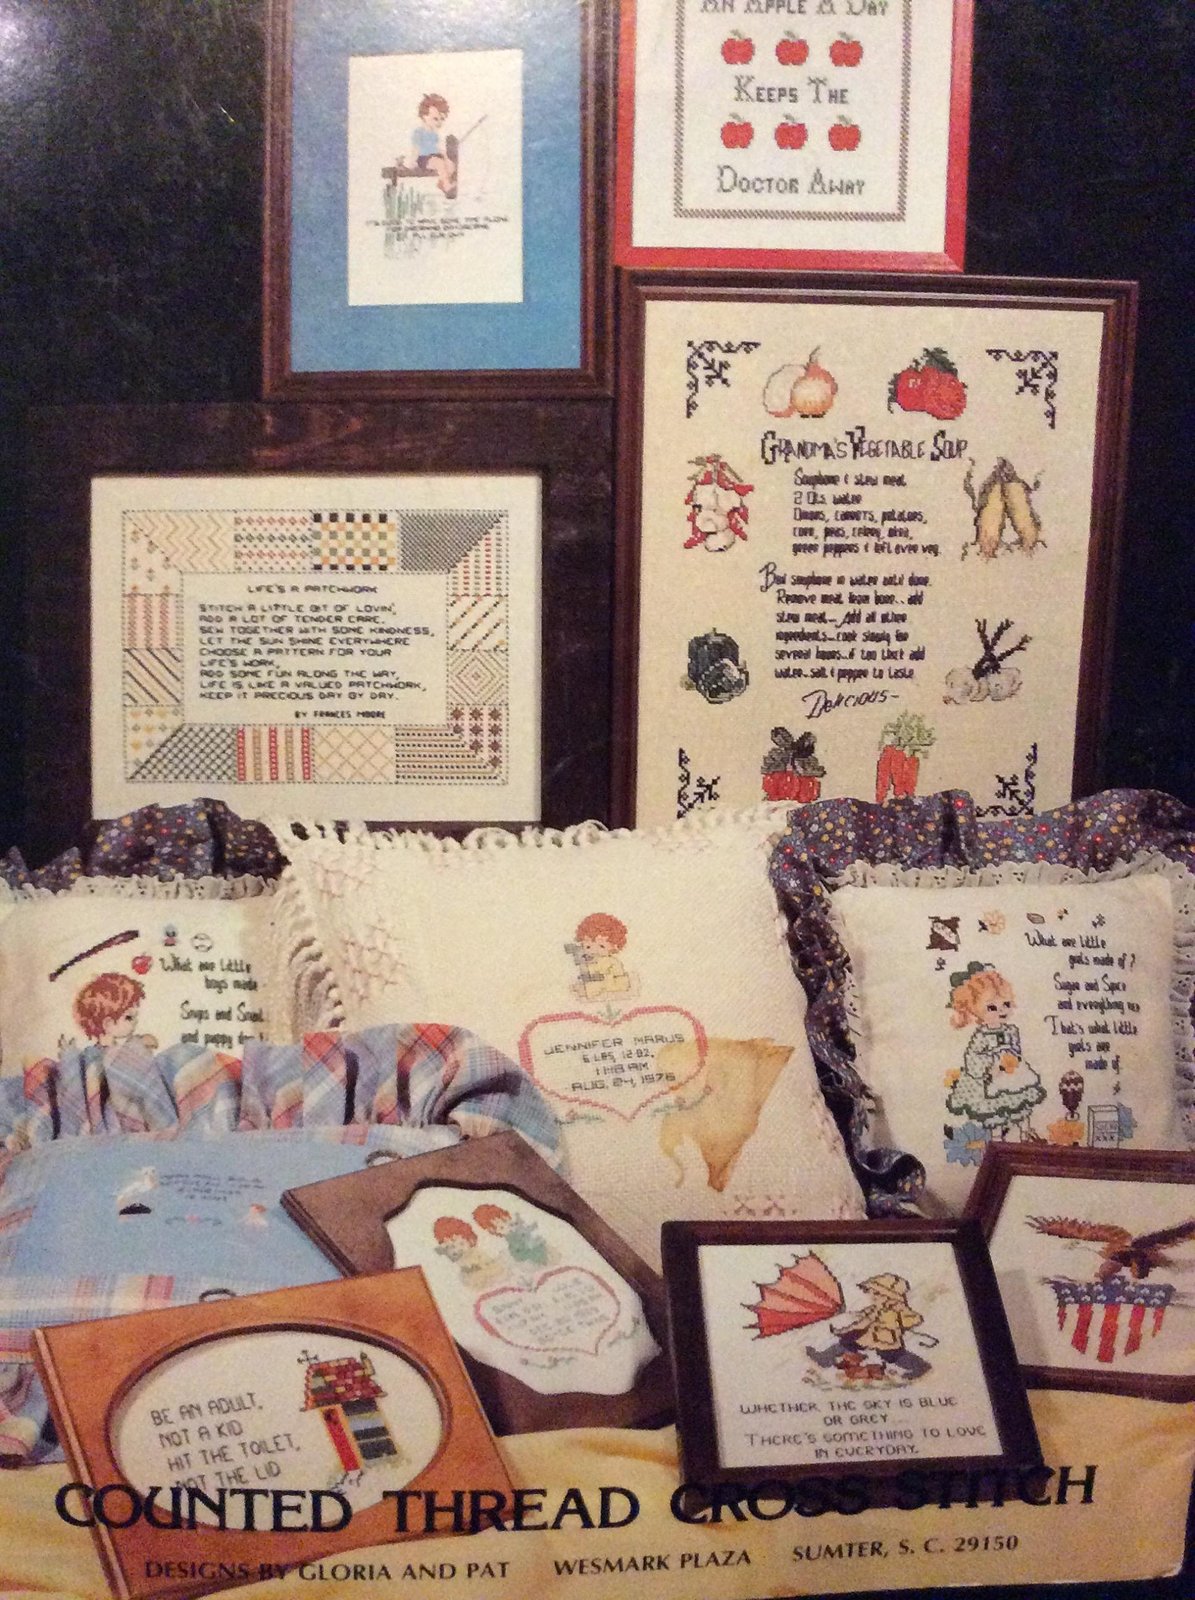 AN APPLE A DAY
KEEPS THE
DOCTOR AWAY
GRANDMA'S VEGETABLE SOUP
Soupbone & stew meat
2 Qts. water
Onions, carrots, potatoes,
corn, peas, celery, okra,
green peppers & left over veg.
Boil soupbone in water until done.
Remove meat from bone.. add
stew meat... Add all other
ingredients...cook slowly for
several hours..if too thick add
water..salt & pepper to taste
Delicious-
LIFE'S A PATCHWORK
STITCH A LITTLE BIT OF LOVIN',
ADD A LOT OF TENDER CARE,
SEW TOGETHER WITH SOME KINDNESS,
LET THE SUN SHINE EVERYWHERE
CHOOSE A PATTERN FOR YOUR
LIFE'S WORK,
ADD SOME FUN ALONG THE WAY,
LIFE IS LIKE A VALUED PATCHWORK,
KEEP IT PRECIOUS DAY BY DAY.
BY FRANCES MOORE
What are little
boys made
Snips and Snail
and puppy dog
JENNIFER MARUS
6 LBS, 12 OZ.
1:18 AM
AUG. 24, 1976
What are little
girls made of?
Sugar and Spice
and everything
That's what little
girls are
made of.
BE AN ADULT,
NOT A KID
HIT THE TOILET,
NOT THE LID
WHETHER THE SKY IS BLUE
OR GREY...
THERE'S SOMETHING TO LOVE
IN EVERYDAY.
COUNTED THREAD CROSS STITCH
DESIGNS BY GLORIA AND PAT WESMARK PLAZA SUMTER, S. C. 29150